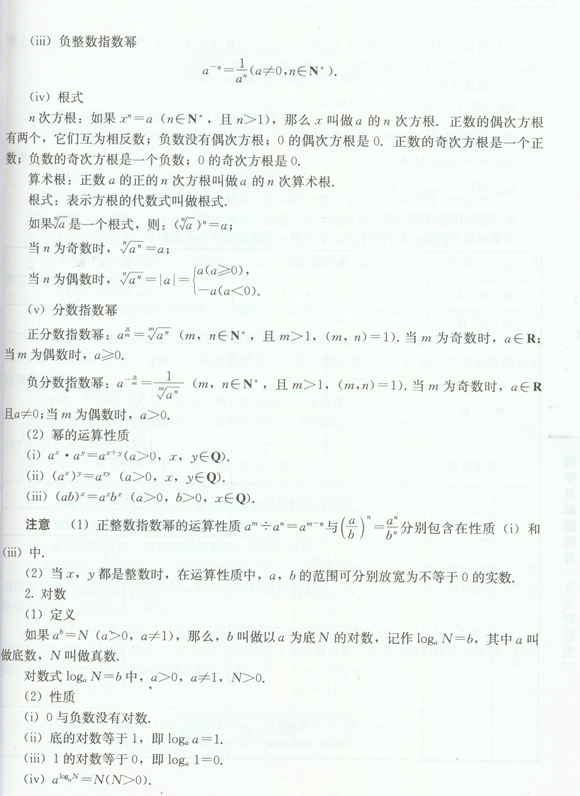 (iii) 负整数指数幂
a⁻ⁿ=1/aⁿ(a≠0,n∈N*).
(iv) 根式
n次方根：如果xⁿ=a（n∈N*，且n>1），那么x叫做a的n次方根. 正数的偶次方根
有两个，它们互为相反数；负数没有偶次方根；0的偶次方根是0. 正数的奇次方根是一个正
数；负数的奇次方根是一个负数；0的奇次方根是0.
算术根：正数a的正的n次方根叫做a的n次算术根.
根式：表示方根的代数式叫做根式.
如果ⁿ√a是一个根式，则：(ⁿ√a)ⁿ=a；
当n为奇数时，ⁿ√aⁿ=a；
当n为偶数时，ⁿ√aⁿ=|a|={a(a≥0), −a(a<0).
(v) 分数指数幂
正分数指数幂：a^(n/m)=ᵐ√aⁿ（m，n∈N*，且m>1，(m，n)=1）. 当m为奇数时，a∈R；
当m为偶数时，a≥0.
负分数指数幂：a^(−n/m)=1/ᵐ√aⁿ（m，n∈N*，且m>1，(m,n)=1）. 当m为奇数时，a∈R
且a≠0；当m为偶数时，a>0.
(2) 幂的运算性质
(i) aˣ·aʸ=aˣ⁺ʸ(a>0，x，y∈Q).
(ii) (aˣ)ʸ=aˣʸ（a>0，x，y∈Q).
(iii) (ab)ˣ=aˣbˣ（a>0，b>0，x∈Q).
注意 (1) 正整数指数幂的运算性质aᵐ÷aⁿ=aᵐ⁻ⁿ与(a/b)ⁿ=aⁿ/bⁿ分别包含在性质（i）和
(iii) 中.
(2) 当x，y都是整数时，在运算性质中，a，b的范围可分别放宽为不等于0的实数.
2. 对数
(1) 定义
如果aᵇ=N（a>0，a≠1），那么，b叫做以a为底N的对数，记作logₐ N=b，其中a叫
做底数，N叫做真数.
对数式logₐ N=b中，a>0，a≠1，N>0.
(2) 性质
(i) 0与负数没有对数.
(ii) 底的对数等于1，即logₐ a=1.
(iii) 1的对数等于0，即logₐ 1=0.
(iv) a^(logₐN)=N(N>0).